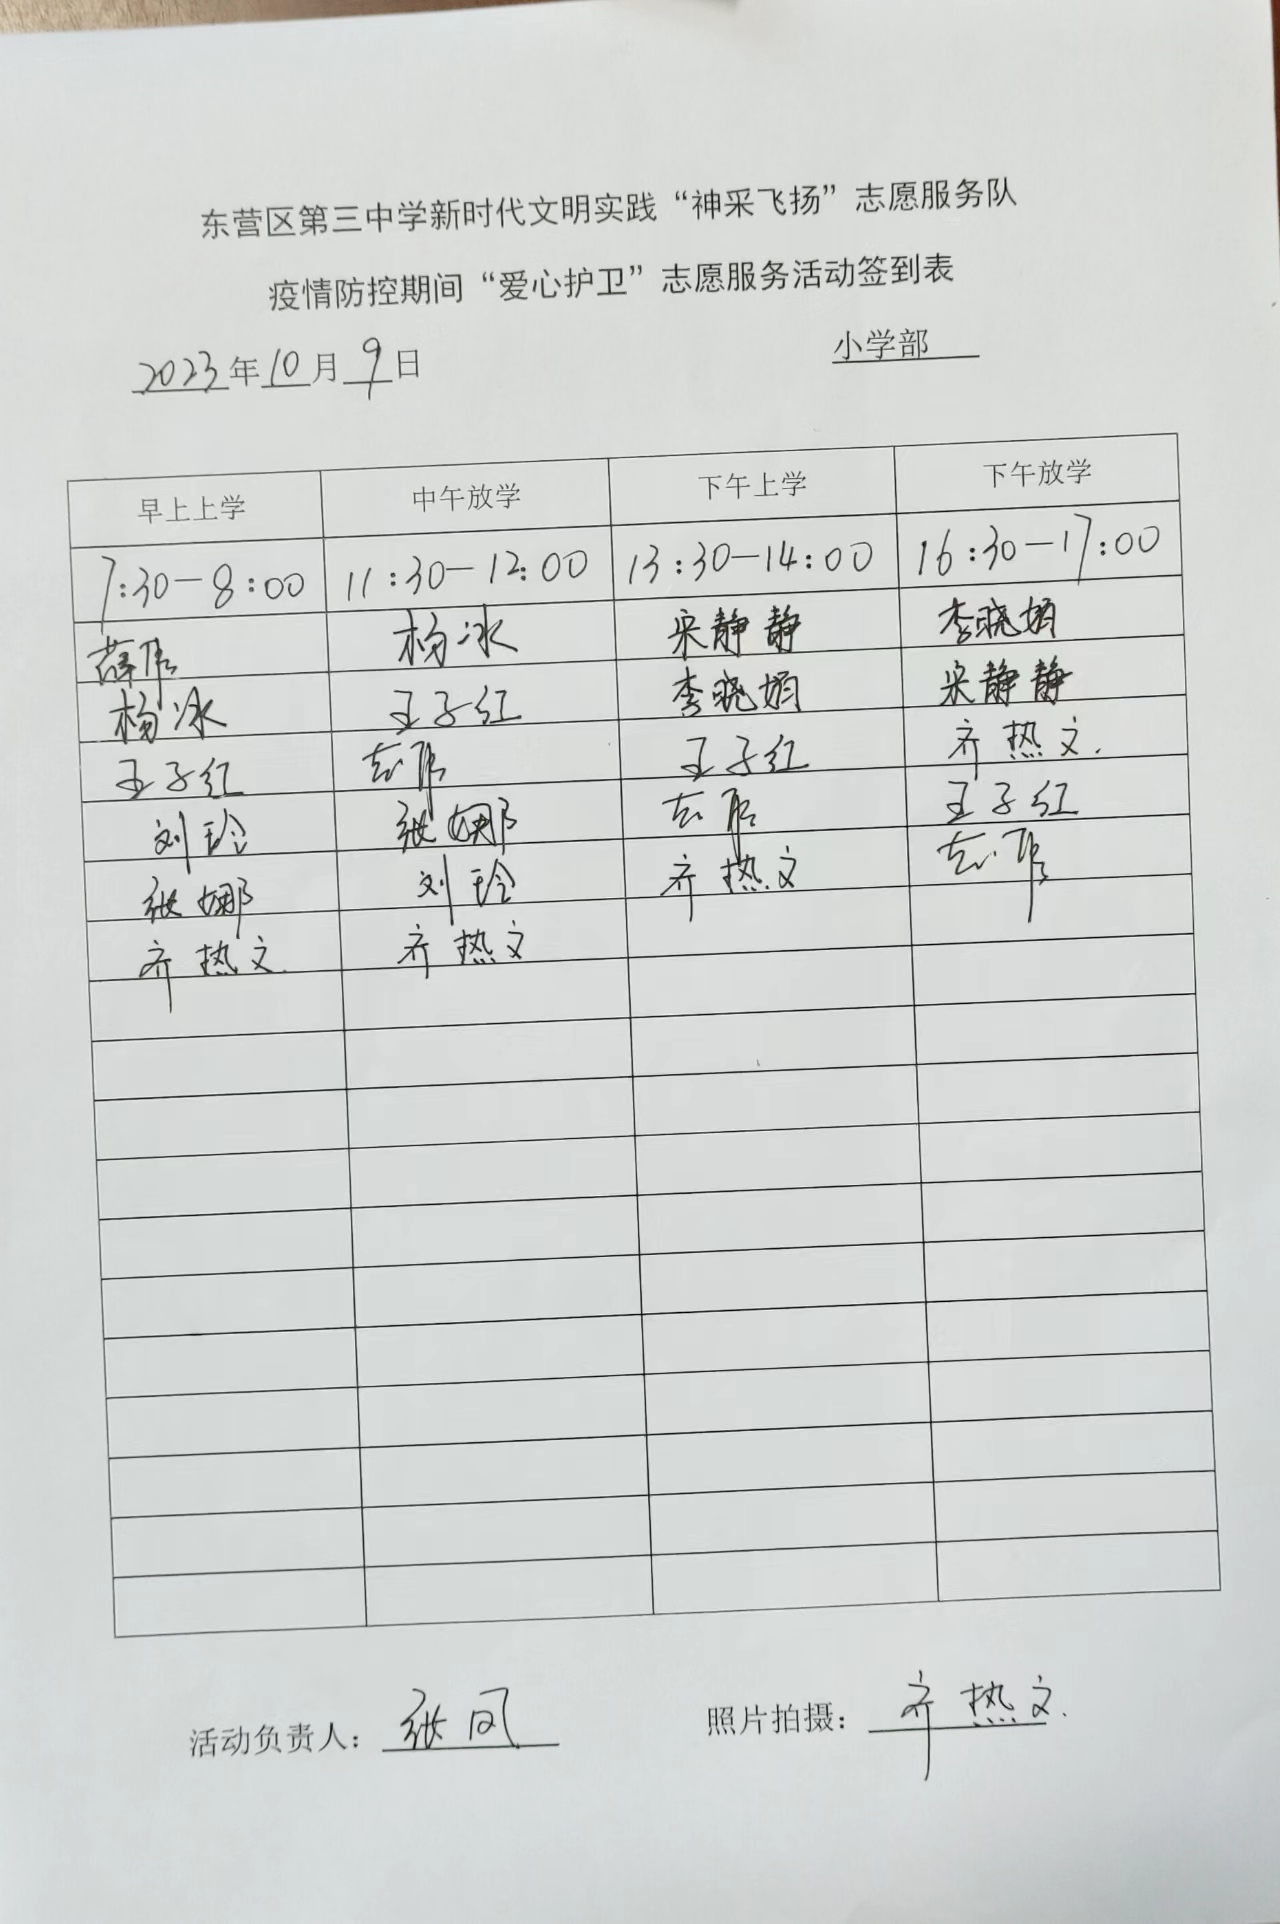 东营区第三中学新时代文明实践“神采飞扬”志愿服务队
疫情防控期间“爱心护卫”志愿服务活动签到表
2023年10月9日 小学部
早上上学 中午放学 下午上学 下午放学
7:30-8:00 11:30-12:00 13:30-14:00 16:30-17:00
杨冰 静静 李晓娟
杨冰 王子红 李晓娟 静静
王子红 王子红 齐热文.
刘玲 张娜 王子红
张娜 刘玲 齐热文
齐热文. 齐热文
活动负责人：张凤 照片拍摄：齐热文.